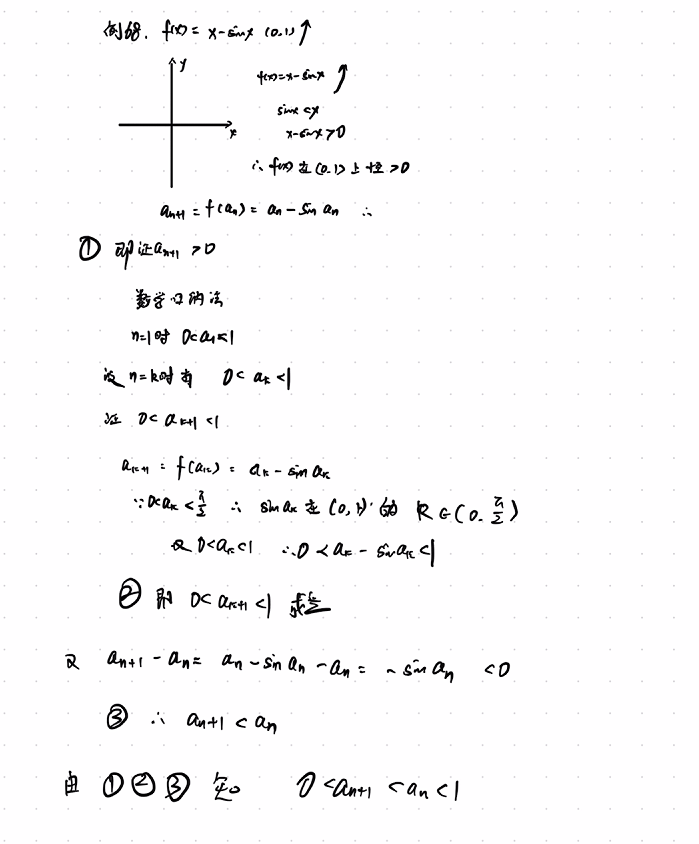 例68. f(x) = x-sinx (0.1)↑
y
f(x)=x-sinx ↑
sinx<x
x
x-sinx>0
∴ f(x) 在 (0.1) 上恒>0
aₙ₊₁ = f(aₙ) = aₙ - sin aₙ ∴
① 即证aₙ₊₁ >0
数学归纳法
n=1时 0<a₁<1
设 n=k时有 0< aₖ <1
证 0< aₖ₊₁ <1
aₖ₊₁ = f(aₖ) = aₖ - sin aₖ
∵0<aₖ<π/2 ∴ sin aₖ 在 (0,1) 的 R∈(0.π/2)
又 0<aₖ<1 ∴0 < aₖ - sin aₖ <1
② 即 0< aₖ₊₁ <1 成立
又 aₙ₊₁ - aₙ = aₙ - sin aₙ - aₙ = - sin aₙ <0
③ ∴ aₙ₊₁ < aₙ
由 ①②③ 知 0 <aₙ₊₁ <aₙ <1